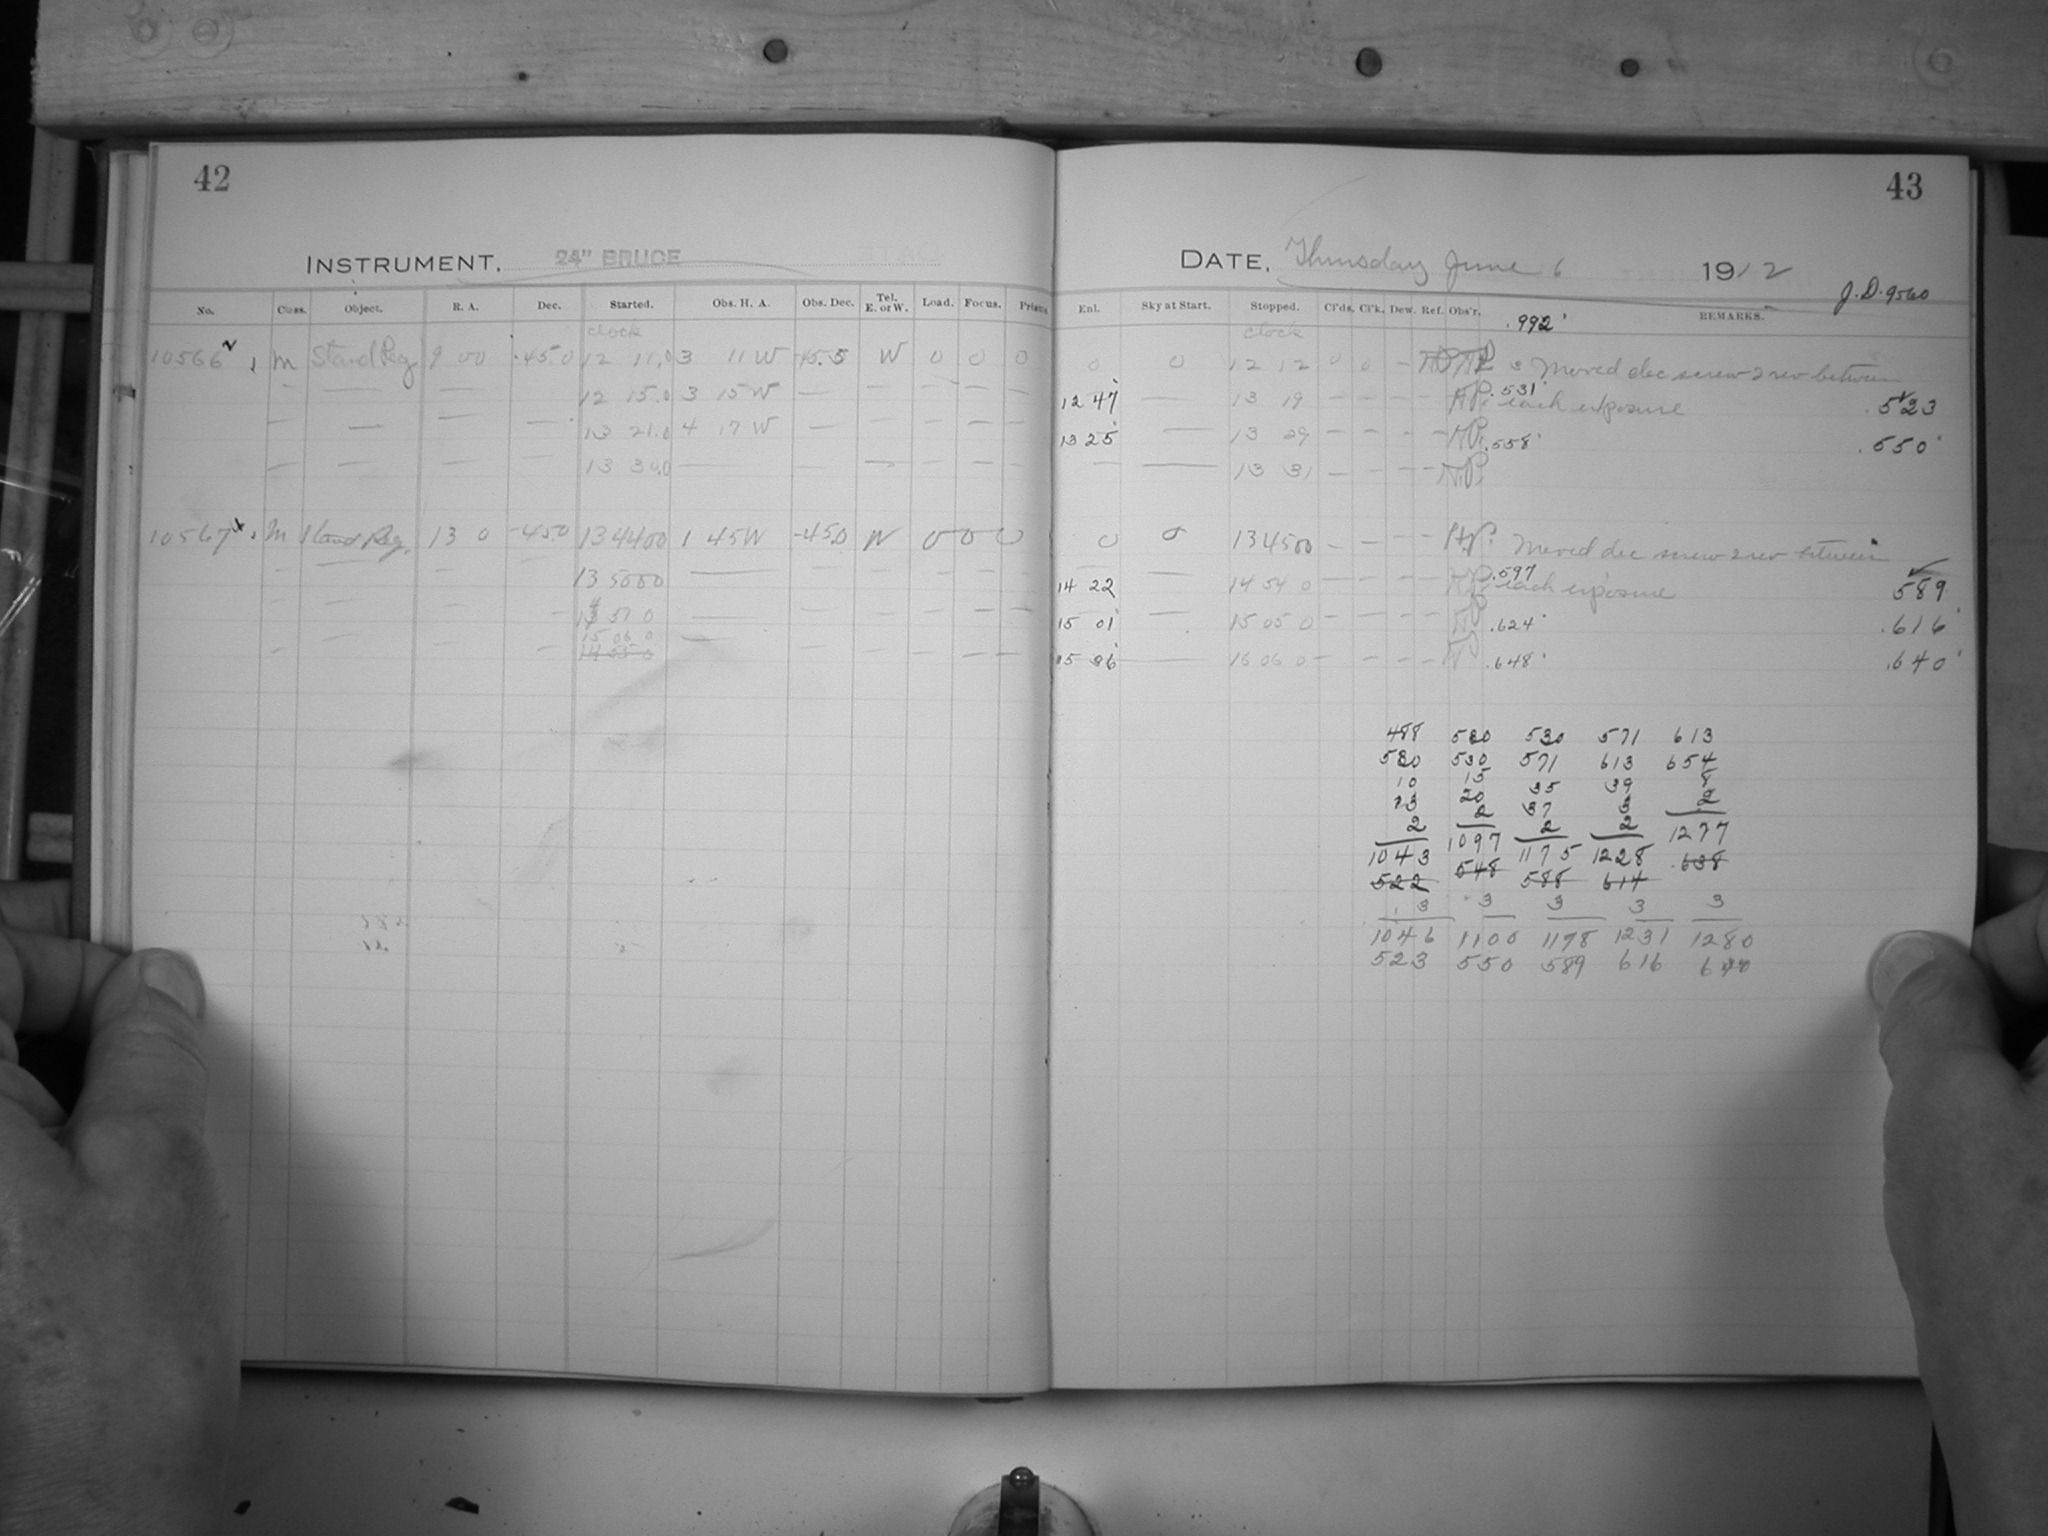 42
INSTRUMENT, 24" BRUCE
No. Class. Object. R. A. Dec. Started. Obs. H. A. Obs. Dec. Tel. E. or W. Load. Focus. Prisms
clock
10566 m Stand Reg 9 00 -45.0 12 11.0 3 11 W -45.5 W 0 0 0
— — — — 12 15.0 3 15 W — — — — —
— — — — 13 21.0 4 17 W — — — — —
— — — — 13 30.0 — — — — — —
10567 M Stand Reg. 13 0 -45.0 13 44 00 1 45 W -45.0 W 0 0 0
— — — — 13 50 00 — — — — — —
— — — — 57 0 — — — — — —
15 06 0
— — — — 14 55 0 — — — — —
43
DATE, Thursday June 6 1912
J.D. 9560
Enl. Sky at Start. Stopped. Cl'ds. Cl'k. Dew. Ref. Obs'r. .992 REMARKS.
clock
0 0 12 12 0 0 — Moved dec screw 2 rev between
12 47 — 13 19 — — — — H.P. .531 each exposure .523
13 25 — 13 29 — — — — H.P. .558 .550
— — 13 31 — — — — H.P.
0 0 13 45 00 — — — — H.P. Moved dec screw 2 rev between
14 22 — 14 54 0 — — — — H.P. .597 each exposure 589
15 01 — 15 05 0 — — — — HP .624 .616
15 36 — 16 06 0 — — — — .648 .640
488 520 530 571 613
520 530 571 613 654
10 15 35 39 8
13 20 37 3 2
2 2 2 2 1277
1043 1097 1175 1228 638
522 548 588 614
3 3 3 3 3
1046 1100 1178 1231 1280
523 550 589 616 640